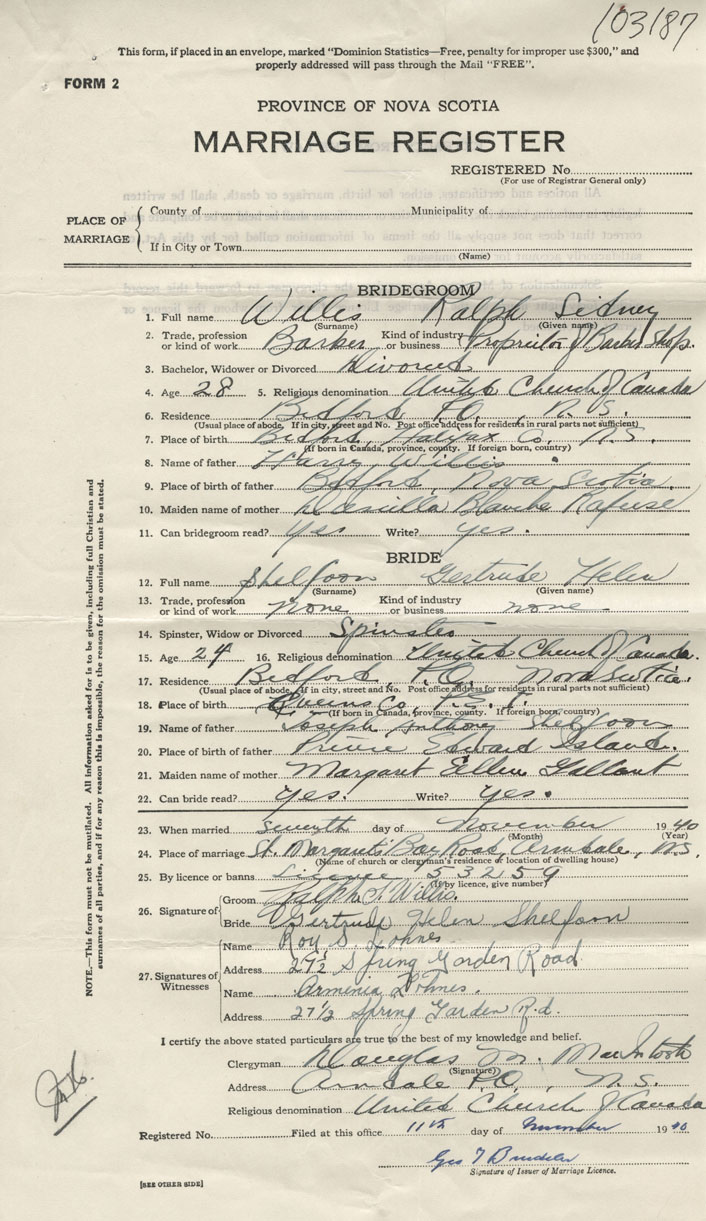 103187
This form, if placed in an envelope, marked "Dominion Statistics—Free, penalty for improper use $300," and
properly addressed will pass through the Mail "FREE".
FORM 2
PROVINCE OF NOVA SCOTIA
MARRIAGE REGISTER
REGISTERED No.
(For use of Registrar General only)
PLACE OF MARRIAGE
County of Municipality of
If in City or Town
(Name)
BRIDEGROOM
1. Full name Willis Ralph Sidney
(Surname) (Given name)
2. Trade, profession or kind of work Barber Kind of industry or business Proprietor of Barber Shop.
3. Bachelor, Widower or Divorced Divorced
4. Age 28 5. Religious denomination United Church of Canada
6. Residence Bedford P.O., N.S.
(Usual place of abode. If in city, street and No. Post office address for residents in rural parts not sufficient)
7. Place of birth Bedford, Halifax Co., N.S.
(If born in Canada, province, county. If foreign born, country)
8. Name of father Harry Willis
9. Place of birth of father Bedford, Nova Scotia.
10. Maiden name of mother Blanche
11. Can bridegroom read? yes Write? yes.
BRIDE
12. Full name Shelfoon Gertrude Helen
(Surname) (Given name)
13. Trade, profession or kind of work none Kind of industry or business none
14. Spinster, Widow or Divorced Spinster
15. Age 24 16. Religious denomination United Church of Canada.
17. Residence Bedford, P.O., Nova Scotia.
(Usual place of abode. If in city, street and No. Post office address for residents in rural parts not sufficient)
18. Place of birth Queens Co., P.E.I.
(If born in Canada, province, county. If foreign born, country)
19. Name of father Joseph Anthony Shelfoon
20. Place of birth of father Prince Edward Island.
21. Maiden name of mother Margaret Ellen Gallant
22. Can bride read? Yes. Write? Yes.
23. When married seventh day of November 1940
(Month) (Year)
24. Place of marriage St. Margaret's Bay Road, Armdale, N.S.
(Name of church or clergyman's residence or location of dwelling house)
25. By licence or banns Licence 53259
(If by licence, give number)
26. Signature of
Groom Ralph S. Willis.
Bride Gertrude Helen Shelfoon
27. Signatures of Witnesses
Name Roy S. Lohnes
Address 27½ Spring Garden Road
Name Armenia Lohnes.
Address 27½ Spring Garden Rd.
I certify the above stated particulars are true to the best of my knowledge and belief.
Clergyman Douglas M. MacIntosh
(Signature)
Address Armdale P.O., N.S.
Religious denomination United Church of Canada
Registered No. Filed at this office 11th day of November 1940
Geo T
Signature of Issuer of Marriage Licence.
[SEE OTHER SIDE]
NOTE.—This form must not be mutilated. All information asked for is to be given, including full Christian and
surnames of all parties, and if for any reason this is impossible, the reason for the omission must be stated.